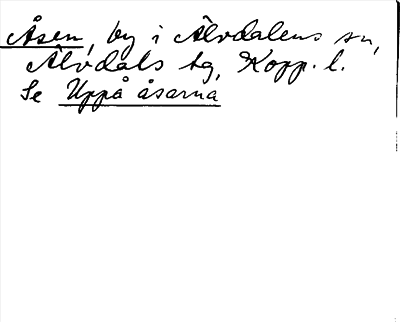 Åsen, by i Älvdalens sn,
Älvdals tg, Kopp. l.
Se Uppå åsarna